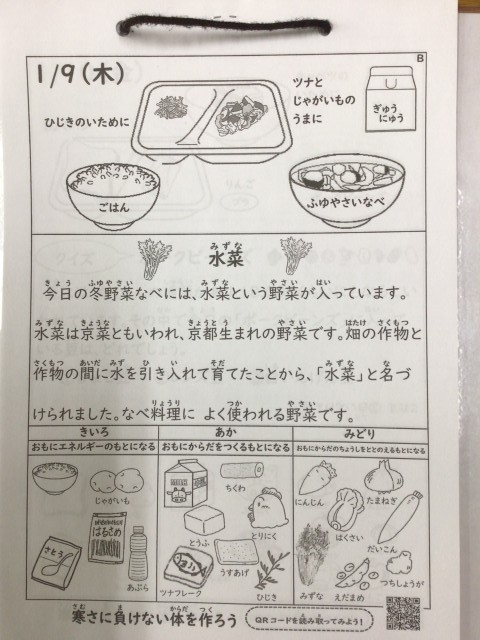 B
1/9(木)
ひじきのいために
ツナと
じゃがいもの
うまに
ぎゅう
にゅう
ごはん
ふゆやさいなべ
水菜
今日の冬野菜なべには、水菜という野菜が入っています。
水菜は京菜ともいわれ、京都生まれの野菜です。畑の作物と
作物の間に水を引き入れて育てたことから、「水菜」と名づ
けられました。なべ料理に よく使われる野菜です。
きいろ
おもにエネルギーのもとになる
じゃがいも
はるさめ
さとう
あぶら
あか
おもにからだをつくるもとになる
ちくわ
とうふ
とりにく
うすあげ
ツナフレーク
ひじき
みどり
おもにからだのちょうしをととのえるもとになる
にんじん
たまねぎ
はくさい
だいこん
みずな
えだまめ
つちしょうが
寒さに負けない体を作ろう
QRコードを読み取ってみよう!